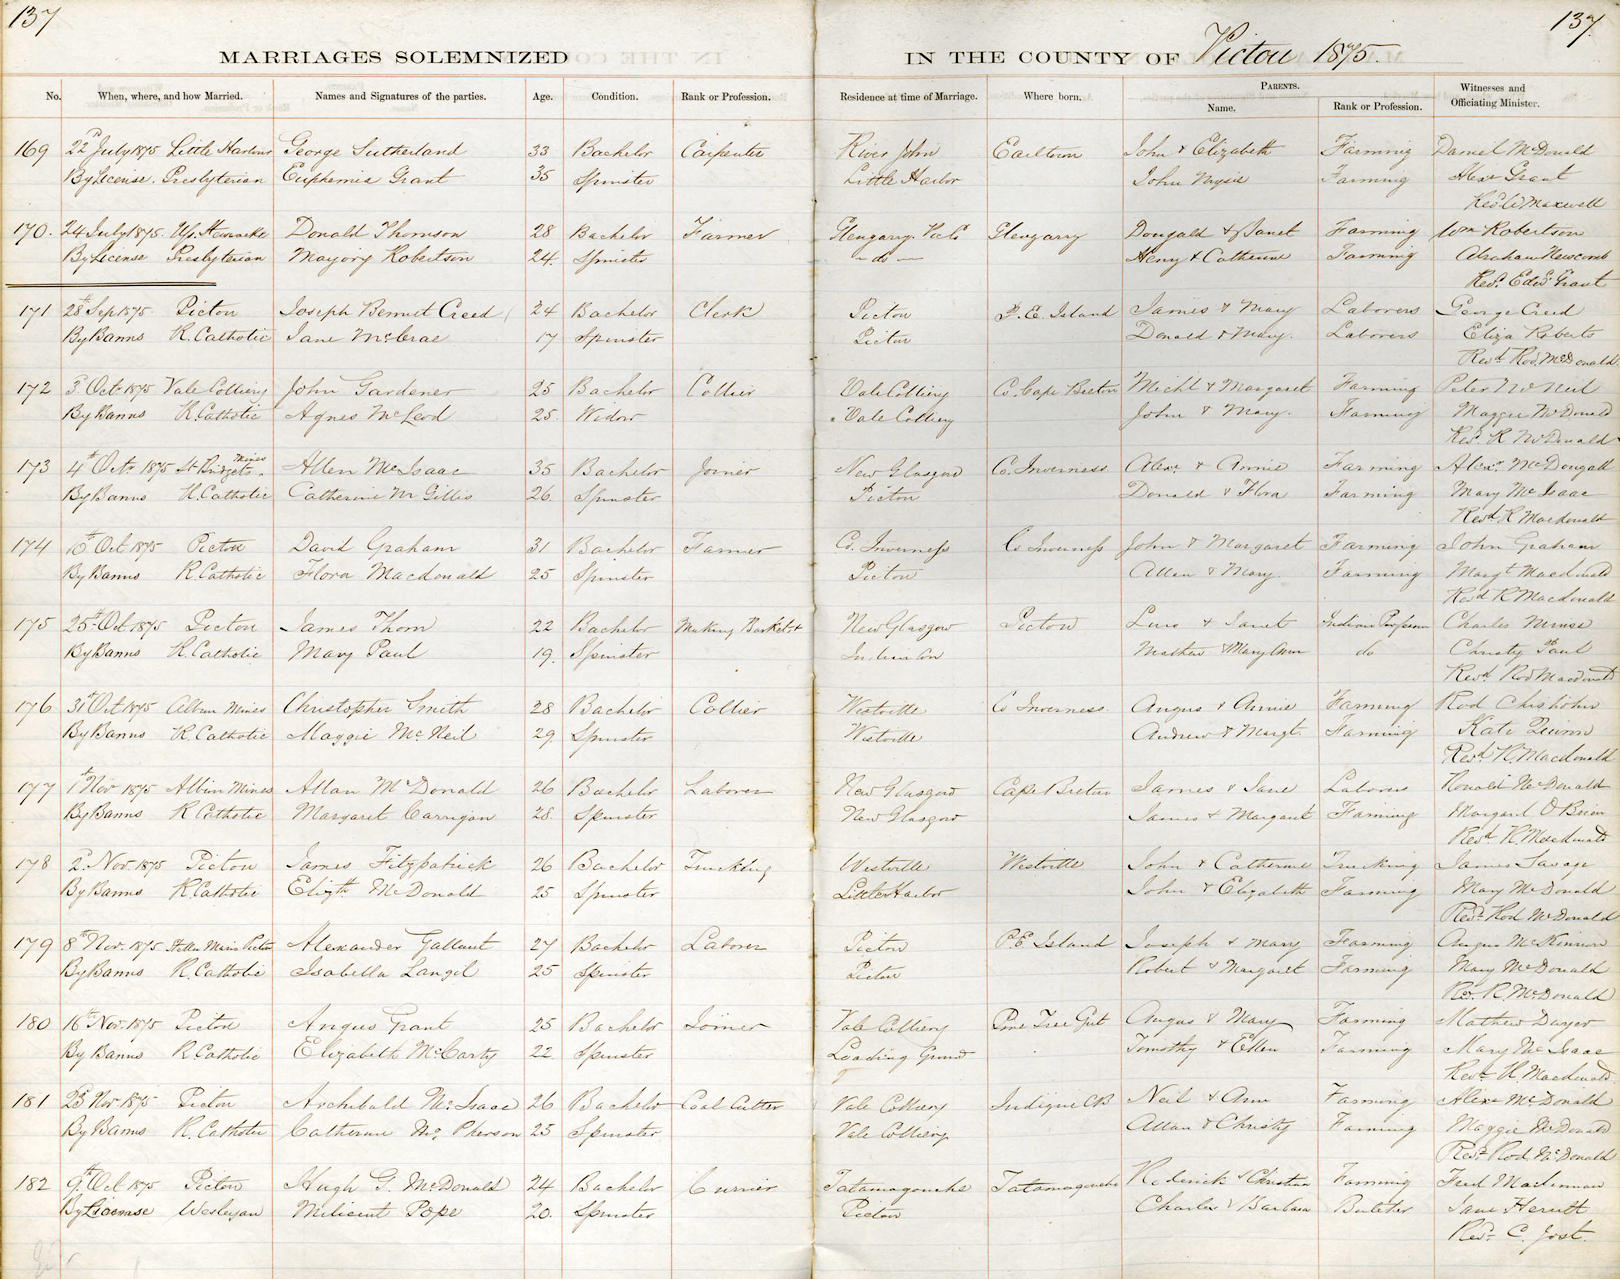 137
137.
MARRIAGES SOLEMNIZED IN THE COUNTY OF Pictou 1875.
No. When, where, and how Married. Names and Signatures of the parties. Age. Condition. Rank or Profession. Residence at time of Marriage. Where born. PARENTS. Name. Rank or Profession. Witnesses and Officiating Minister.
169 22d July 1875 Little Harbour George Sutherland 33 Bachelor Carpenter River John Earltown John & Elizabeth Farming Daniel McDonald
By License. Presbyterian Euphemia Grant 35 Spinster Little Harbor John Farming Alexr Grant
Revd W Maxwell
170. 24 July 1875. Donald Thomson 28 Bachelor Farmer Glengarry. Glengarry Dougald & Janet Farming Wm Robertson
By License Presbyterian Mayory Robertson 24. Spinster - do - Henry & Catherine Farming Abraham Newcomb
Revd Edwd Grant
171 28th Sep 1875 Pictou Joseph Bennet Creed 24 Bachelor Clerk Pictou P. E. Island James & Mary Laborers George Creed
By Banns R. Catholic Jane McCrae 17 Spinster Pictou Donald & Mary. Laborers Eliza Roberts
Revd Rod. McDonald
172 3d Oct. 1875 Vale Colliery John Gardener 25 Bachelor Collier Vale Colliery Co. Cape Breton Michl & Margaret Farming Peter McNeil
By Banns R. Catholic Agnes McLeod 25. Widow Vale Colliery John & Mary. Farming Maggie McDonald
Revd R McDonald
173 4th Octr 1875 St Bridgets Mines Allen McIsaac 35 Bachelor Joiner New Glasgow Co. Inverness Alexr & Annie Farming Alexr McDougall
By Banns R. Catholic Catherine McGillis 26 Spinster Pictou Donald & Flora Farming Mary McIsaac
Revd R Macdonald
174 10th Oct 1875 Pictou David Graham 31 Bachelor Farmer Co. Inverness Co Inverness John & Margaret Farming John Graham
By Banns R. Catholic Flora Macdonald 25 Spinster Pictou Allan & Mary Farming Margt Macdonald
Revd R Macdonald
175 25th Oct 1875 Pictou James Thom 22 Bachelor Making Baskets New Glasgow Pictou & Janet Indian Profession Charles
By Banns R. Catholic Mary Paul 19. Spinster Mathew & Mary Ann do Christy Paul
Revd Rod Macdonald
176 31st Oct 1875 Albion Mines Christopher Smith 28 Bachelor Collier Westville Co Inverness. Angus & Annie Farming Rod Chisholm
By Banns R. Catholic Maggie McNeil 29. Spinster Westville Andrew & Margt. Farming Kate Quinn
Revd R Macdonald
177 1st Nov 1875 Albion Mines Allan McDonald 26 Bachelor Laborer New Glasgow Cape Breton James & Jane Laborer Ronald McDonald
By Banns R Catholic Margaret Carrigan 28 Spinster New Glasgow James & Margaret Farming Margaret O'Brien
Revd R Macdonald
178 2. Nov. 1875 Pictou James Fitzpatrick 26 Bachelor Truckling Westville Westville John & Catherine Trucking James Savage
By Banns R. Catholic Elizth McDonald 25 Spinster Little Harbor John & Elizabeth Farming Mary McDonald
Revd Rod McDonald
179 8th Nov. 1875 Stella Maris Pictou Alexander Gallant 27 Bachelor Laborer Pictou P. E. Island Joseph & Mary Farming Angus McKinnon
By Banns R. Catholic Isabella Langil 25 Spinster Pictou Robert & Margaret Farming Mary McDonald
Rev. R. McDonald
180 16th Nov. 1875 Pictou Angus Grant 25 Bachelor Joiner Vale Colliery Pine Tree Gut Angus & Mary Farming Mathew Dwyer
By Banns R. Catholic Elizabeth McCarty 22 Spinster Loading Ground Timothy & Ellen Farming Mary McIsaac
Revd R Macdonald
181 23d Nov 1875 Pictou Archibald McIsaac 26 Bachelor Coal Cutter Vale Colliery Indique CB Neil & Ann Farming Alexr McDonald
By Banns R. Catholic Catherine McPherson 25 Spinster Vale Colliery Allan & Christy Farming Maggie McDonald
Revd Rod McDonald
182 9th Oct 1875 Pictou Hugh G. McDonald 24 Bachelor Currier Tatamagouche Tatamagouche Roderick & Christina Farming Fred Mackinnon
By License Wesleyan Milicent Pope 20. Spinster Pictou Charles & Barbara Butcher Jane
Revd C. Jost.